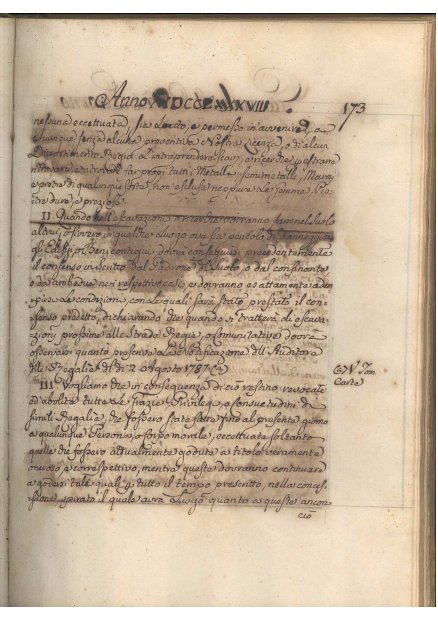 Anno MDCCLXXXVIII. 173
nessuna eccettuata, sia lecito, e permesso in avvenire, a
chiunque senza alcuna preventiva Nostra Licenza, o di alcun
Dipartimento Regio d'intraprendere scavi, e ricerche per
ritrovare, e render propri tutti i Metalli, semimetalli,
e pietra di qualunque sorte non escluse neppure le Gemme, Pie-
tre dure, e preziose.
II. Quando tali escavazioni, o ricerche dovranno farsi nel Suolo
altrui, ovvero in qualche luogo ova sia pericolo di danneggiare
gli Edifizj, o Beni contigui, dovrà conseguirsi precedentemente
il consenso in scritto dal Padrone del Suolo, o dal confinante
o da ambedue nei respettivi casi, e dovranno esattamente adem-
pirsi le condizioni, con le quali sarà stato prestato il con-
senso predetto, dichiarando che quando si tratterà di escava-
zioni prossime alle Strade Regie, o comunitative dovrà
osservarsi quanto prescrive la Notificazione dell'Auditore
delle Regalie de dì 2 Agosto 1787
III. Vogliamo che in conseguenza di ciò restino revocate
ed abolite tutte le Grazie, Privilegj, e consuetudini di
simili Regalie, che fossero state fatte fino al presente giorno
a qualunque Persona, o corpo morale, eccettuate soltanto
quelle che fossero attualmente godute a titolo veramente
oneroso, e correspettivo, mentre queste dovranno continuare
a godersi tale quale per tutto il tempo prescritto nella conces-
sione, spirato il quale avrà Luogo quanto a queste ancora
ciò
Tom.
Carte